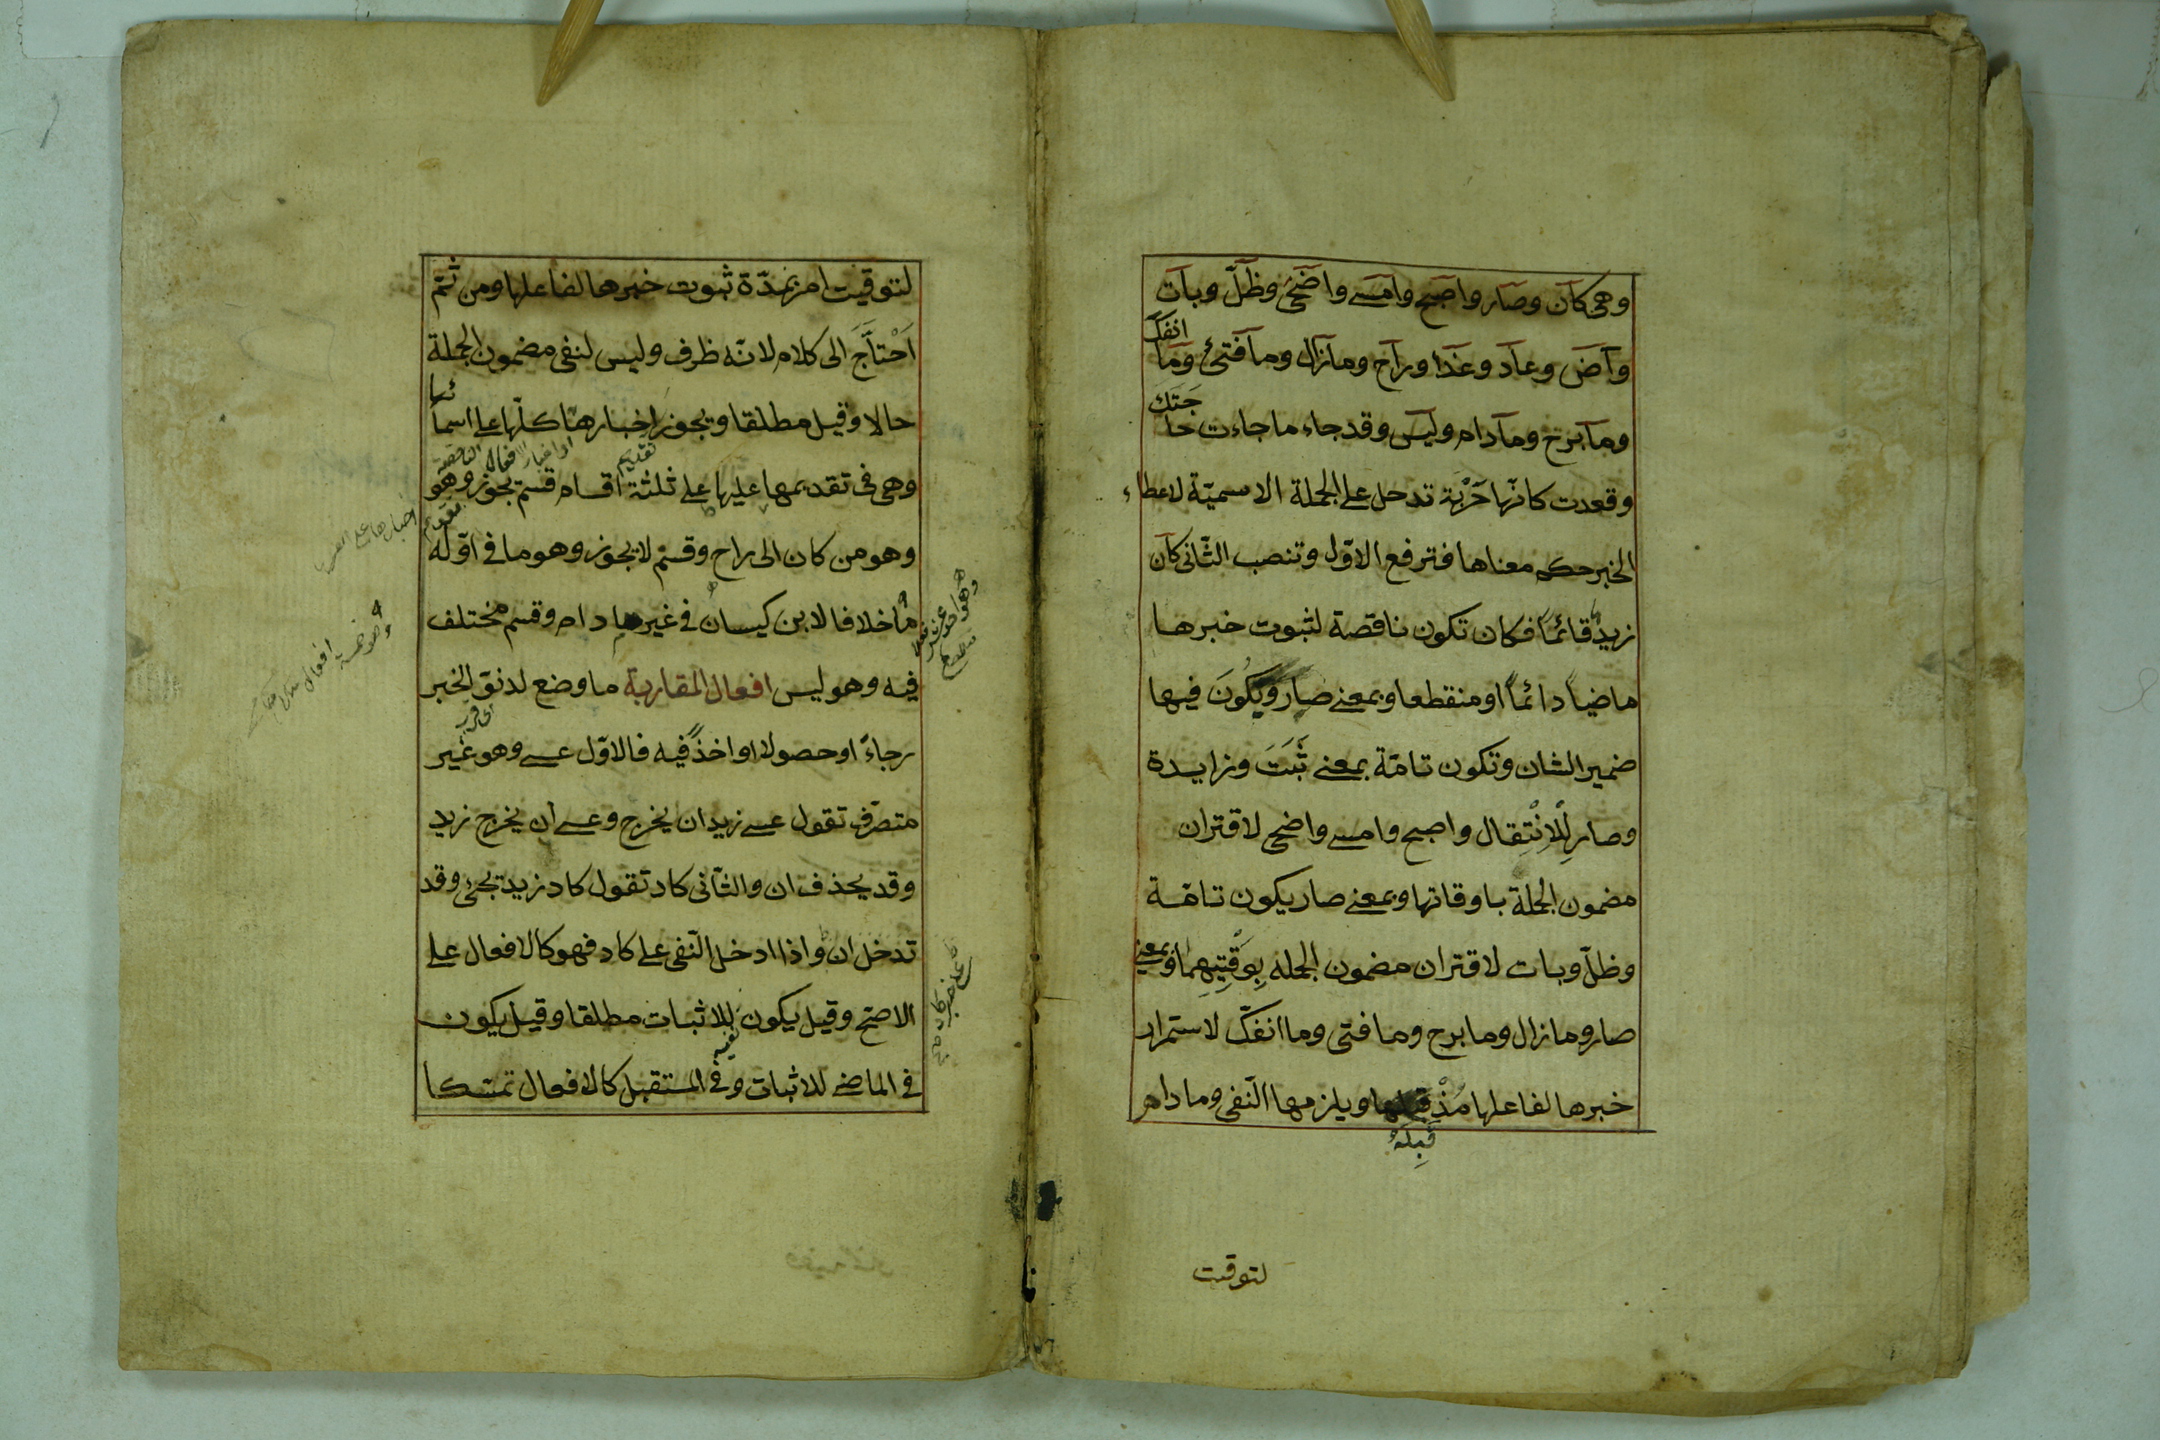 وهى كان وصار واصبح وامسى واضحى وظلّ وبات
وآض وعاد وغدا وراح ومازال ومافتئ وما انفكّ
ومابرح ومادام وليس وقدجاء ماجاءت حاجتك
وقعدت كانّها حَرْبَة تدخل على الجملة الاسميّة لاعطاء
الخبر حكم معناها فترفع الاوّل وتنصب الثّانى كان
زيدٌ قائمًا فكان تكون ناقصة لثبوت خبرها
ماضياً دائمًا او منقطعا وبمعنى صار ويكُونَ فيها
ضمير الشان وتكون تامّة بمعنى ثَبَتَ وزايدة
وصار لِلاِنْتِقال واصبح وامسى واضحى لاقتران
مضمون الجملة باوقاتها وبمعنى صار يكون تامّة
وظلّ وبات لاقتران مضمون الجمله بِوَقْتِيهِما وبمعنى
صار ومازال ومابرح ومافتى وماانفكّ لاستمرار
خبرها لفاعلها مُذْ قبلها ويلزمها النّفى ومادام
قَبِلَهُ
لتوقيت
لتوقيت امر بمدّة ثبوت خبرها لفاعلها ومن ثمّ
اَحْتاَجَ الى كلام لانّه ظرف وليس لنفى مضمون الجملة
حالا وقيل مطلقا ويجوز اخبارها كلّها على اسمائها
تقديم
وهى فى تقديمها عليها على ثلثة اقسام قسم يجوز وهو
وهو من كان الى راح وقسم لايجوز وهو ما فى اوّله
ما خلافا لابن كيسان فى غير مادام وقسم مختلف
فيه وهو ليس افعال المقاربة ما وضع لدنوّ الخبر
رجاءً او حصولا او اخذًا فيه فالاوّل عسى وهو غير
متصرّف تقول عسى زيد ان يخرج وعسى ان يخرج زيد
وقد يحذف ان والثّانى كاد تقول كاد زيد يجئ وقد
تدخل ان واذا ادخل النّفى على كاد فهو كالافعال على
الاصحّ وقيل يكون للاثبات مطلقا وقيل يكون
فى الماضى للاثبات وفى المستقبل كالافعال تمسّكا